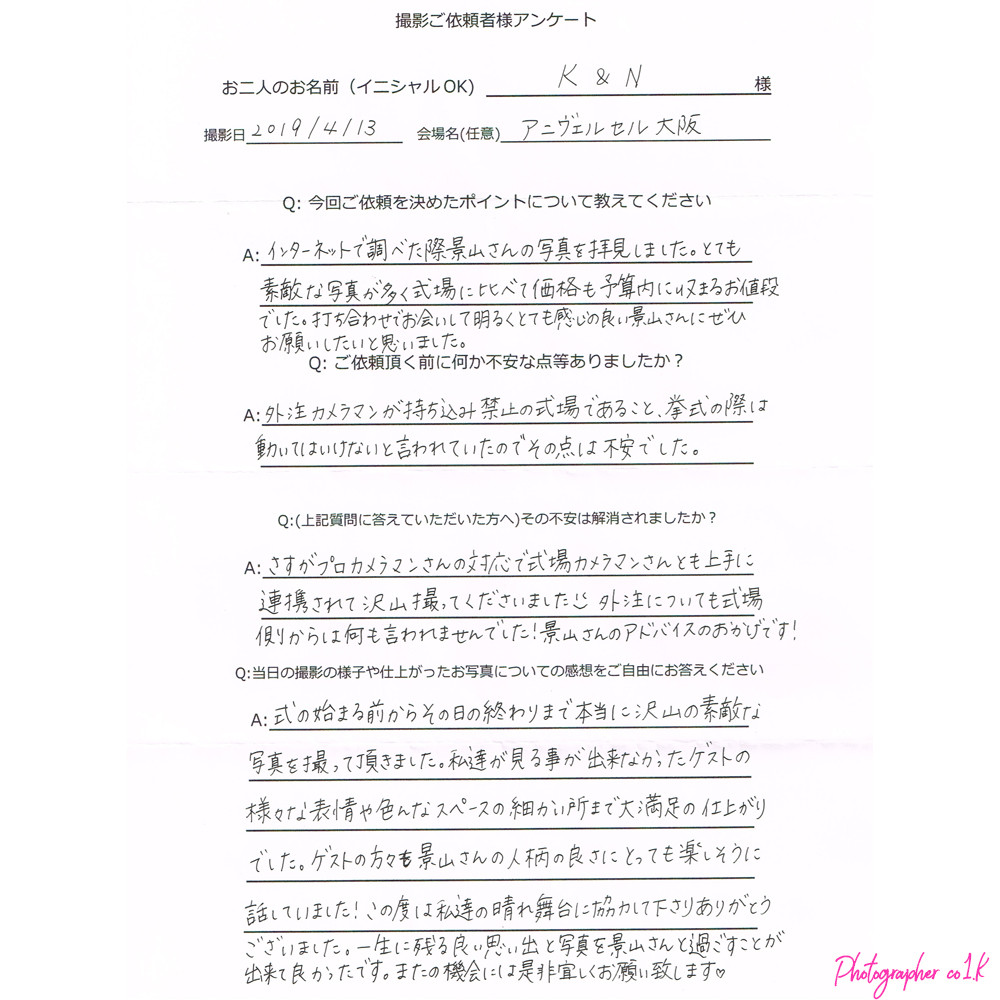 撮影ご依頼者様アンケート
お二人のお名前（イニシャルOK） K & N 様
撮影日 2019/4/13 会場名(任意) アニヴェルセル大阪
Q: 今回ご依頼を決めたポイントについて教えてください
A: インターネットで調べた際景山さんの写真を拝見しました。とても
素敵な写真が多く式場に比べて価格も予算内に収まるお値段
でした。打ち合わせでお会いして明るくとても感じの良い景山さんにぜひ
お願いしたいと思いました。
Q: ご依頼頂く前に何か不安な点等ありましたか？
A: 外注カメラマンが持ち込み禁止の式場であること、挙式の際は
動いてはいけないと言われていたのでその点は不安でした。
Q:(上記質問に答えていただいた方へ)その不安は解消されましたか？
A: さすがプロカメラマンさんの対応で式場カメラマンさんとも上手に
連携されて沢山撮ってくださいました 外注についても式場
側からは何も言われませんでした！景山さんのアドバイスのおかげです！
Q:当日の撮影の様子や仕上がったお写真についての感想をご自由にお答えください
A: 式の始まる前からその日の終わりまで本当に沢山の素敵な
写真を撮って頂きました。私達が見る事が出来なかったゲストの
様々な表情や色んなスペースの細かい所まで大満足の仕上がり
でした。ゲストの方々も景山さんの人柄の良さにとっても楽しそうに
話していました！この度は私達の晴れ舞台に協力して下さりありがとう
ございました。一生に残る良い思い出と写真を景山さんと過ごすことが
出来て良かったです。またの機会には是非宜しくお願い致します♡
Photographer co1.K